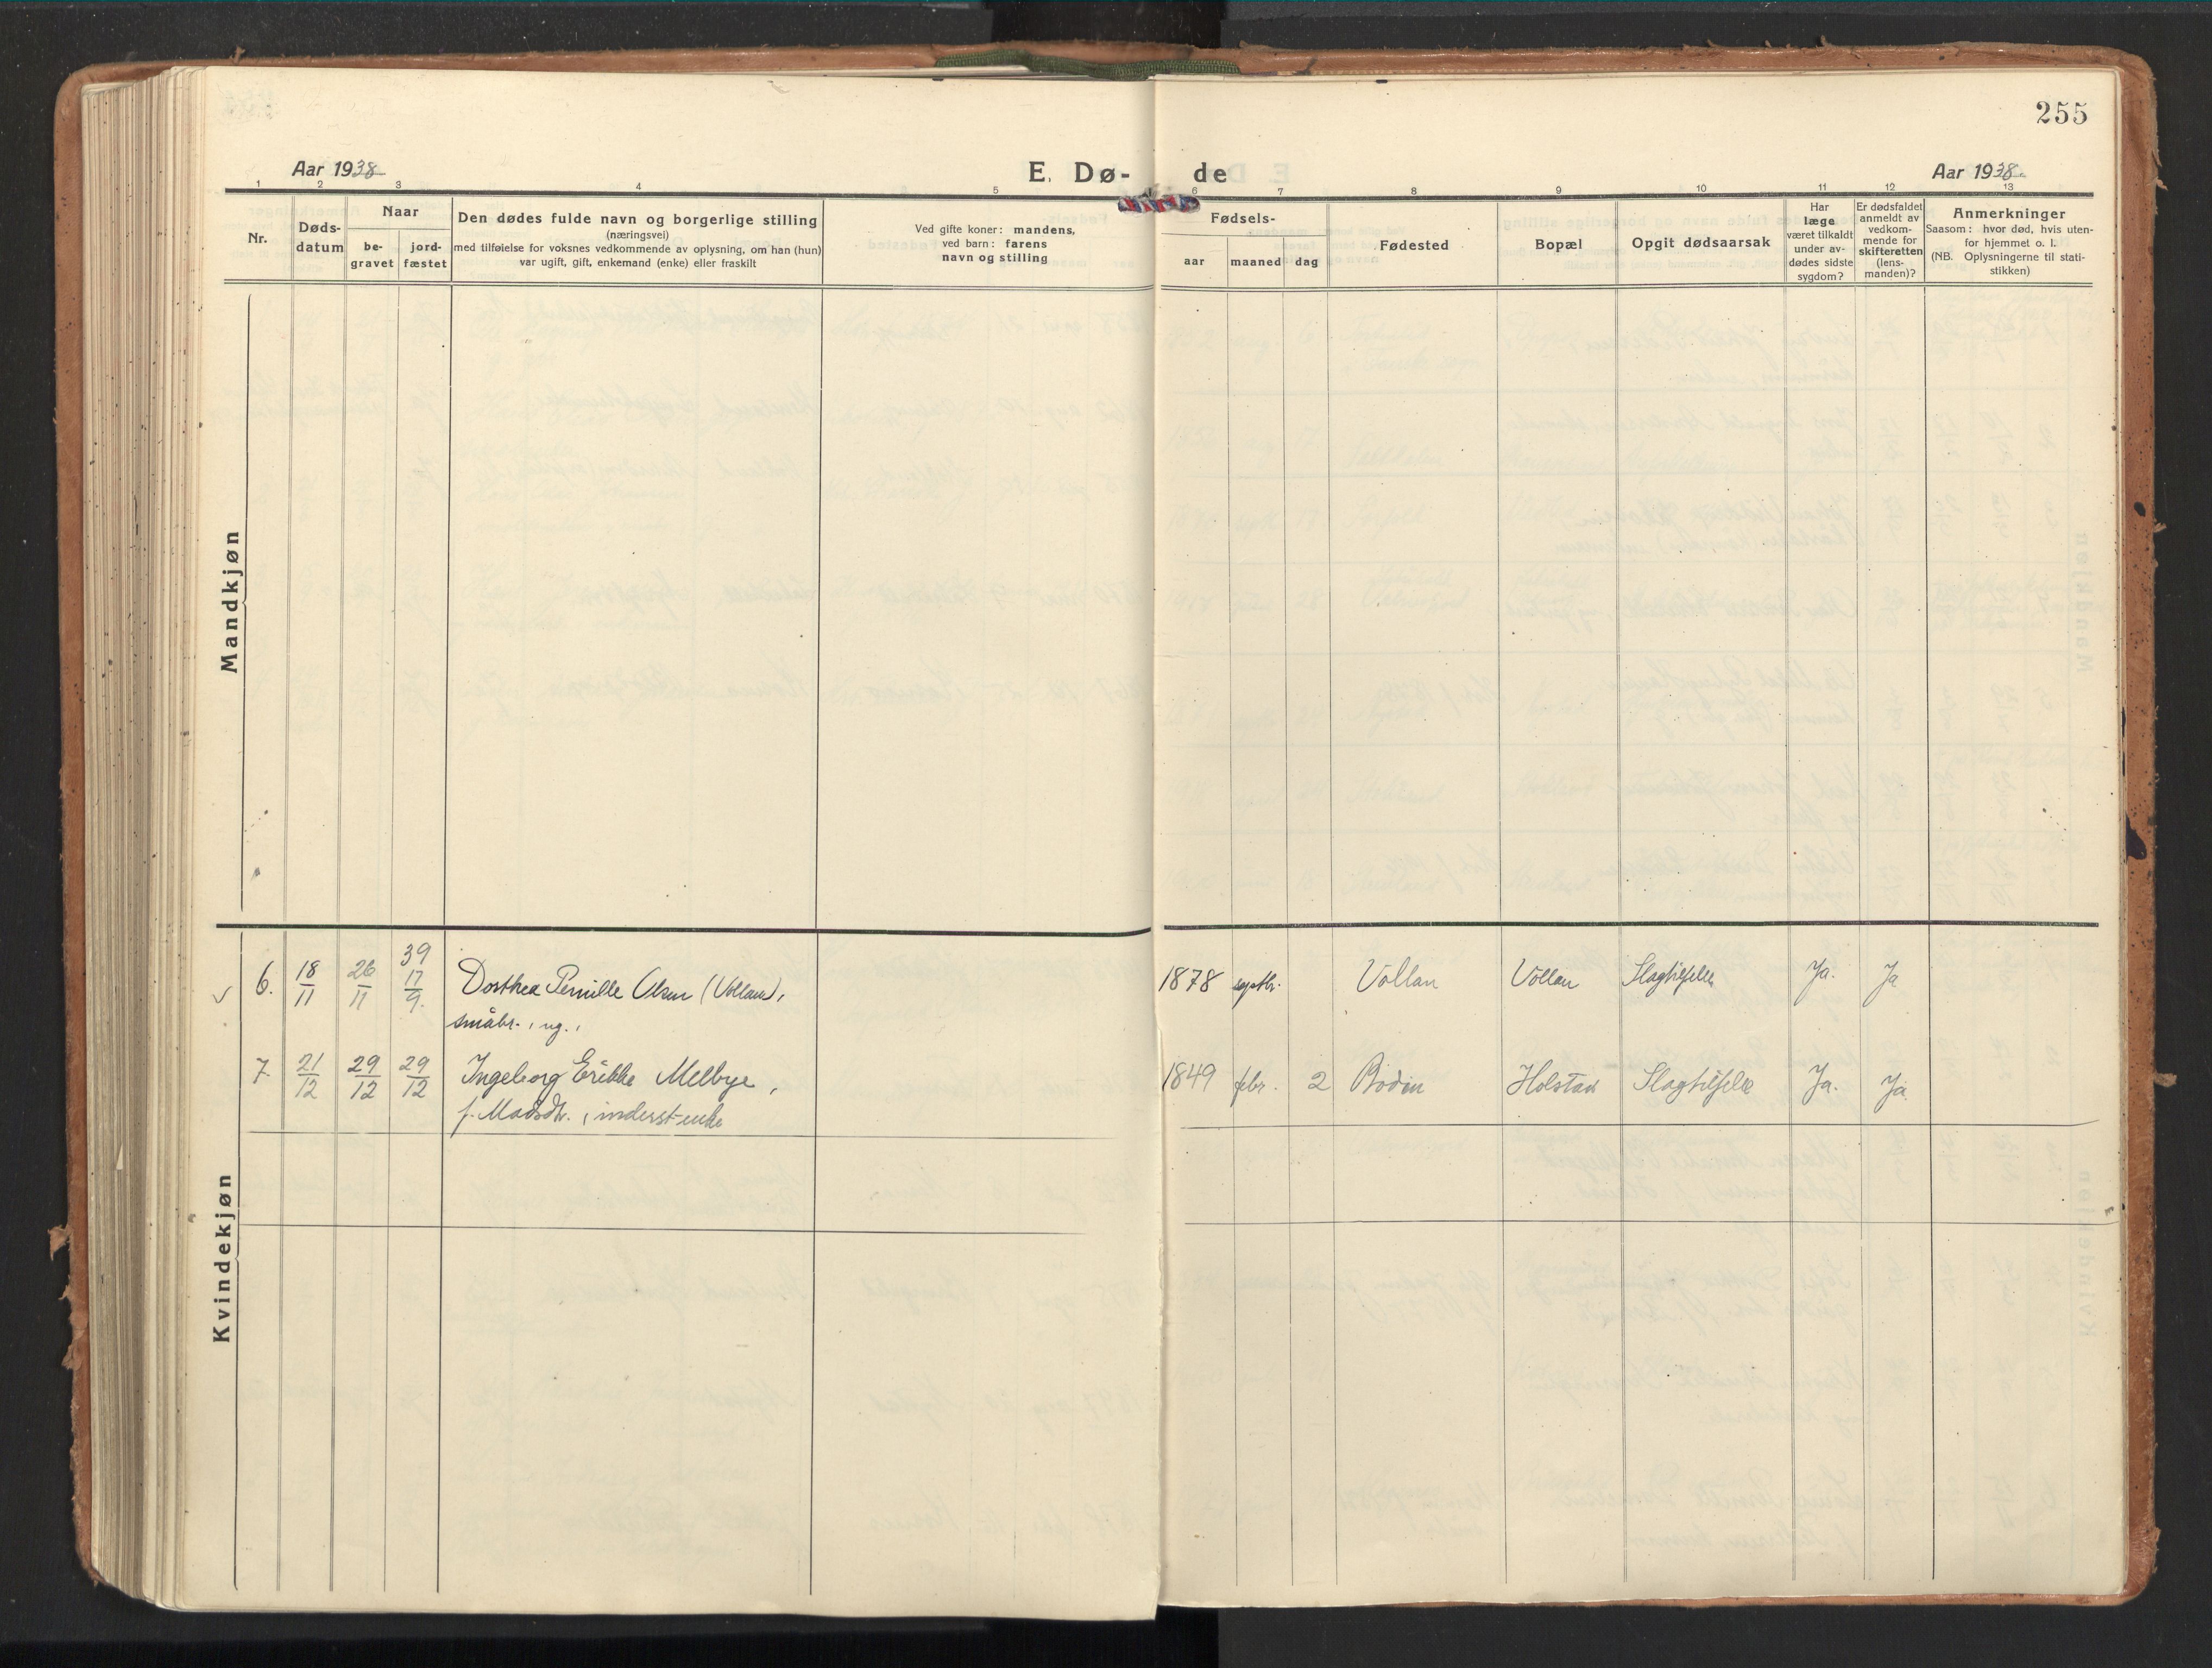 255
Aar 1938
E. Dø- de
Aar 1938.
1 2 3 4 5 6 7 8 9 10 11 12 13
Nr.
Døds-
datum
Naar
be-
gravet
jord-
fæstet
Den dødes fulde navn og borgerlige stilling
(næringsvei)
med tilføielse for voksnes vedkommende av oplysning, om han (hun)
var ugift, gift, enkemand (enke) eller fraskilt
Ved gifte koner: mandens,
ved barn: farens
navn og stilling
Fødsels-
aar
maaned
dag
Fødested
Bopæl
Opgit dødsaarsak
Har
læge
været tilkaldt
under av-
dødes sidste
sygdom?
Er dødsfaldet
anmeldt av
vedkom-
mende for
skifteretten
(lens-
manden)?
Anmerkninger
Saasom: hvor død, hvis uten-
for hjemmet o. l.
(NB. Oplysningerne til stati-
stikken)
Mandkjøn
Kvindekjøn
39
6. 18/11 26/11 17/9. Dorthea Pernille Olsen (Vollan), 1878 septbr. Vollan Vollan Slagtilfelle Ja. Ja
småbr., ug.,
7. 21/12 29/12 29/12 Ingeborg Erikke Melbye, 1849 febr. 2 Bodin Holstad Slagtilfelle Ja. Ja.
f. Madsdtr., inderst-enke